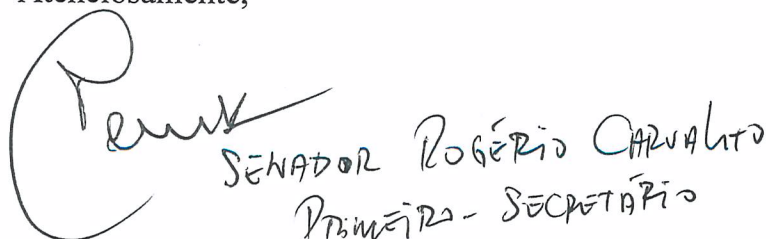 Atenciosamente,
SENADOR ROGÉRIO CARVALHO
PRIMEIRO-SECRETÁRIO